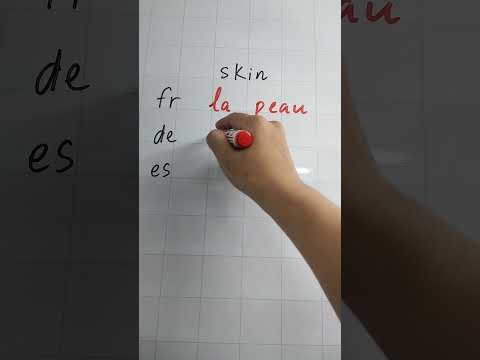 skin
fr la peau
de
es